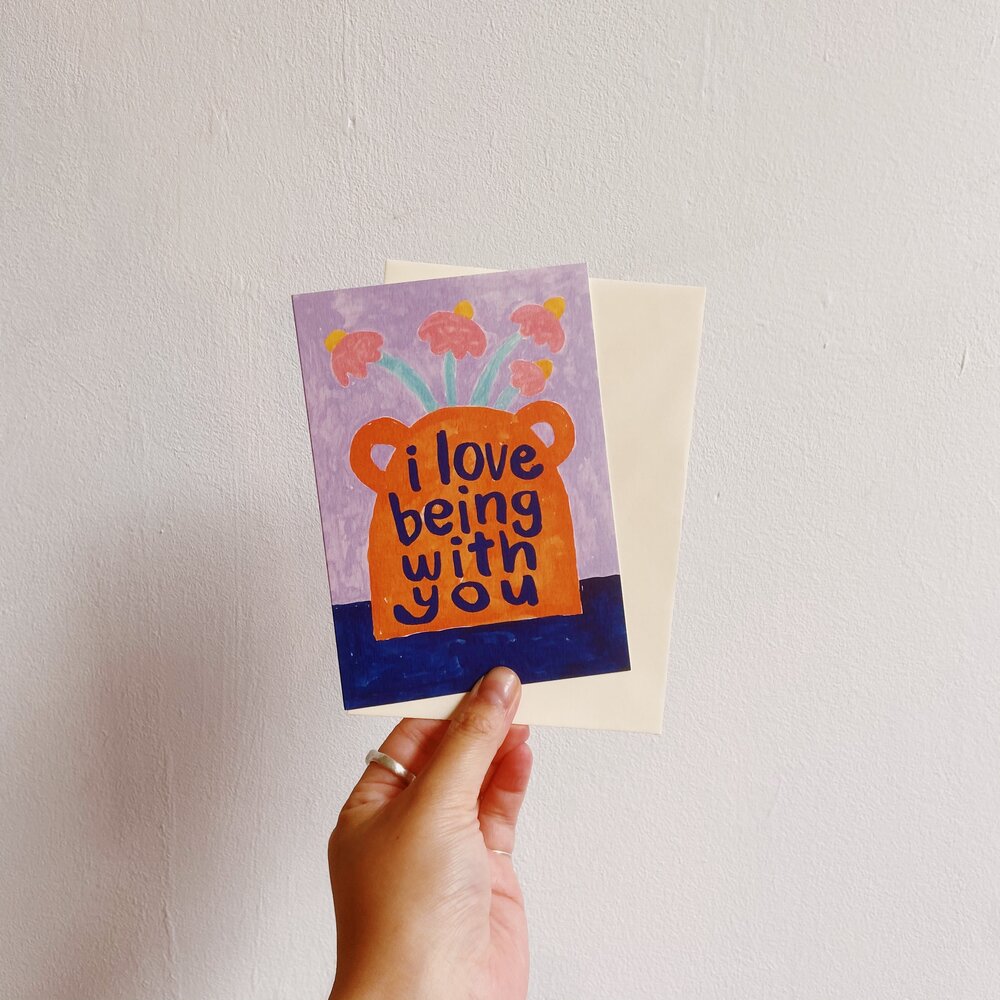 i love
being
with
you